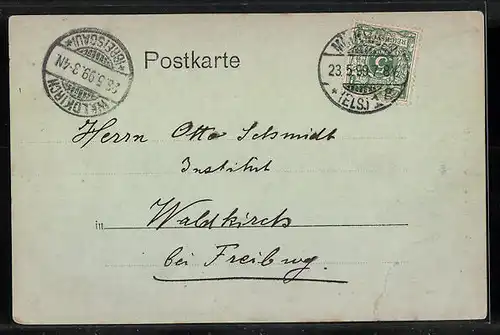 WALDKIRCH
*(BREISGAU)*
5.99.3-4N
Postkarte
23.5.99.7-8
*(ELS.)
Herrn Otto Schmidt
Institut
in Waldkirch
bei Freiburg.